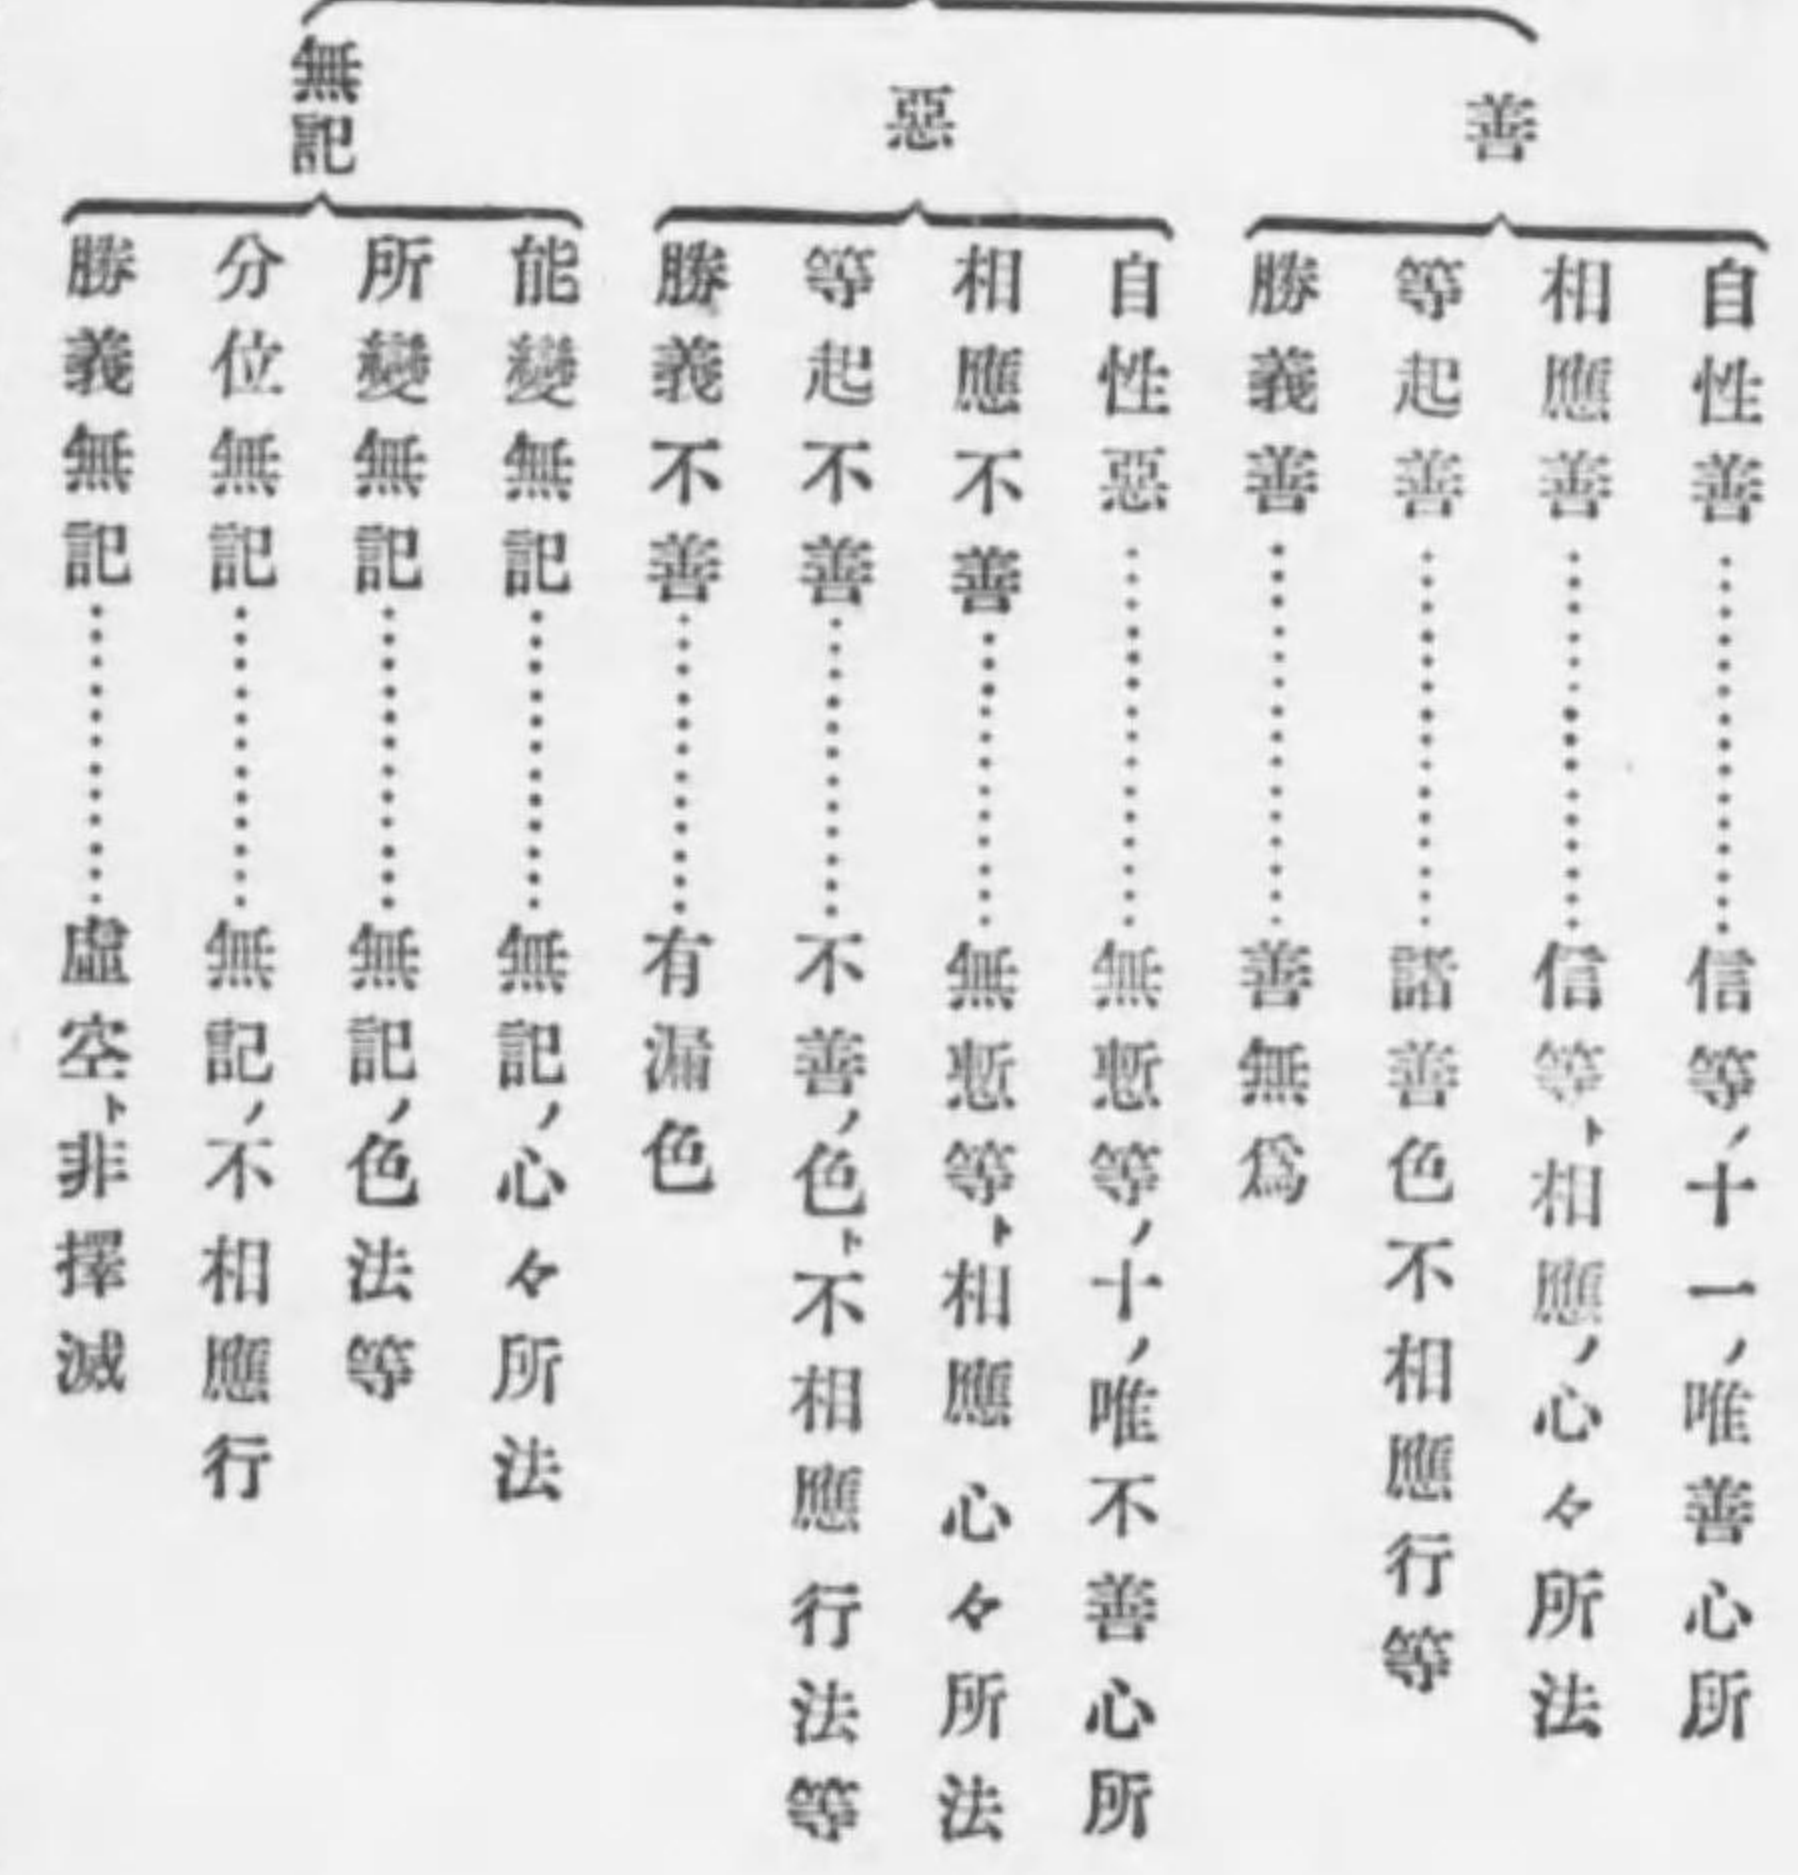 善
自性善……信等ノ十一ノ唯善心所
相應善……信等ト相應ノ心々所法
等起善……諸善色不相應行等
勝義善……善無爲
惡
自性惡……無慙等ノ十ノ唯不善心所
相應不善……無慙等ト相應心々所法
等起不善……不善ノ色ト不相應行法等
勝義不善……有漏色
無記
能變無記……無記ノ心々所法
所變無記……無記ノ色法等
分位無記……無記ノ不相應行
勝義無記……虛空ト非擇滅